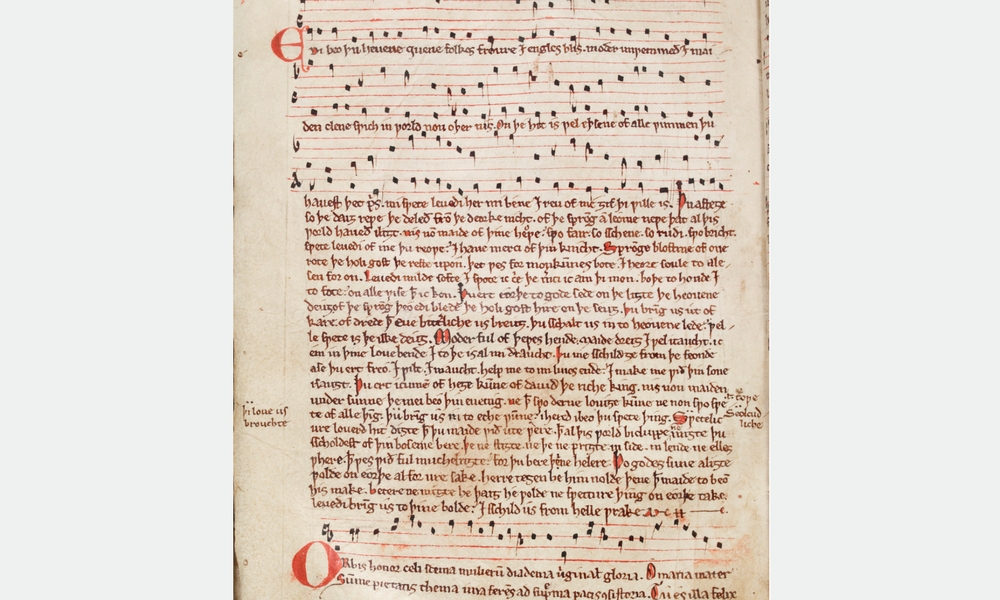 Edi beo þu heuene quene folkes froure ⁊ engles blis. moder unƿemmed ⁊ mai
den clene sƿich in ƿorld non oþer nis. On þe hit is ƿel eþsene of alle ƿimmen þu
hauest þet pͥs. mi sƿete leuedi her mi bene ⁊ reu of me ȝif þi ƿille is. Þu asteȝe
so þe daiȝ reƿe þe deleð frō þe deorke nicht. of þe sprōg a leome neƿe þat al þis
ƿorld haueð iliȝt. nis nō maide of þine heoƿe sƿo fair. so sschene. so rudi. sƿo bricht.
sƿete leuedi of me þu reoƿe ⁊ haue merci of þin knicht. Sprōge blostme of one
rote þe holi gost þe reste upon. þet ƿes for monkūnes bote. ⁊ heore soule to ale
sen for on. Leuedi milde softe ⁊ sƿote ic cͥe þe m̄ci ic am þi mon. boþe to honde ⁊
to fote. on alle ƿise þͭ ic kon. Þu ert eorþe to gode sede on þe liȝte þe heouene
deuȝ. of þe sprōg þeo edi blede þe holi gost hire on þe seuȝ. þu brīg us ut of
kare. of drede þͭ Eue bitterliche us breuȝ. þu sschalt us in to heouene lede. ƿel
le sƿete is þe ilke deuȝ. Moder ful of þeƿes hende. maide dreiȝ ⁊ ƿel itaucht. ic
em in þine loue bende ⁊ to þe is al mi draucht. Þu me sschild ȝe from þe feonde
ase þu ert freo. ⁊ ƿilt. ⁊ maucht. help me to mi liues ende. ⁊ make me ƿið þin sone
isauȝt. Þu ert icumē of heȝe kūne of dauid þe riche king. nis non maiden
under sunne þe mei beo þin eueniȝ. ne þͭ sƿo derne louiȝe kūne ne non sƿo sƿe
te of alle þīg. þu brīg us īn to eche ƿūne. ihered ibeo þu sƿete þing. Sƿetelic
ure louerd hit diȝte þͭ þu maide ƿið ute ƿere. þͭ al þis ƿorld bicluppe ne miȝte þu
sscholdest of þin boseme bere. þe ne stiȝte. ne þe ne priȝte in side. in lende ne elles
ƿhere. þͭ ƿes ƿið ful muchel riȝte. for þu bere þine helere. Þo godes sune aliȝte
ƿolde on eorþe al for ure sake. herre teȝen he him nolde þene þͭ maide to beō
his make. betere ne miȝte he þaiȝ he ƿolde ne sƿetture þing on eorþe take.
leuedi brīg us to þine bolde. ⁊ sschild us from helle ƿrake
þi loue us
brouchte
Scolud
liche
Orbis honor celi scema mulierū diadema ūginal̄ gloria. O maria mater
Sūme pietatis thema